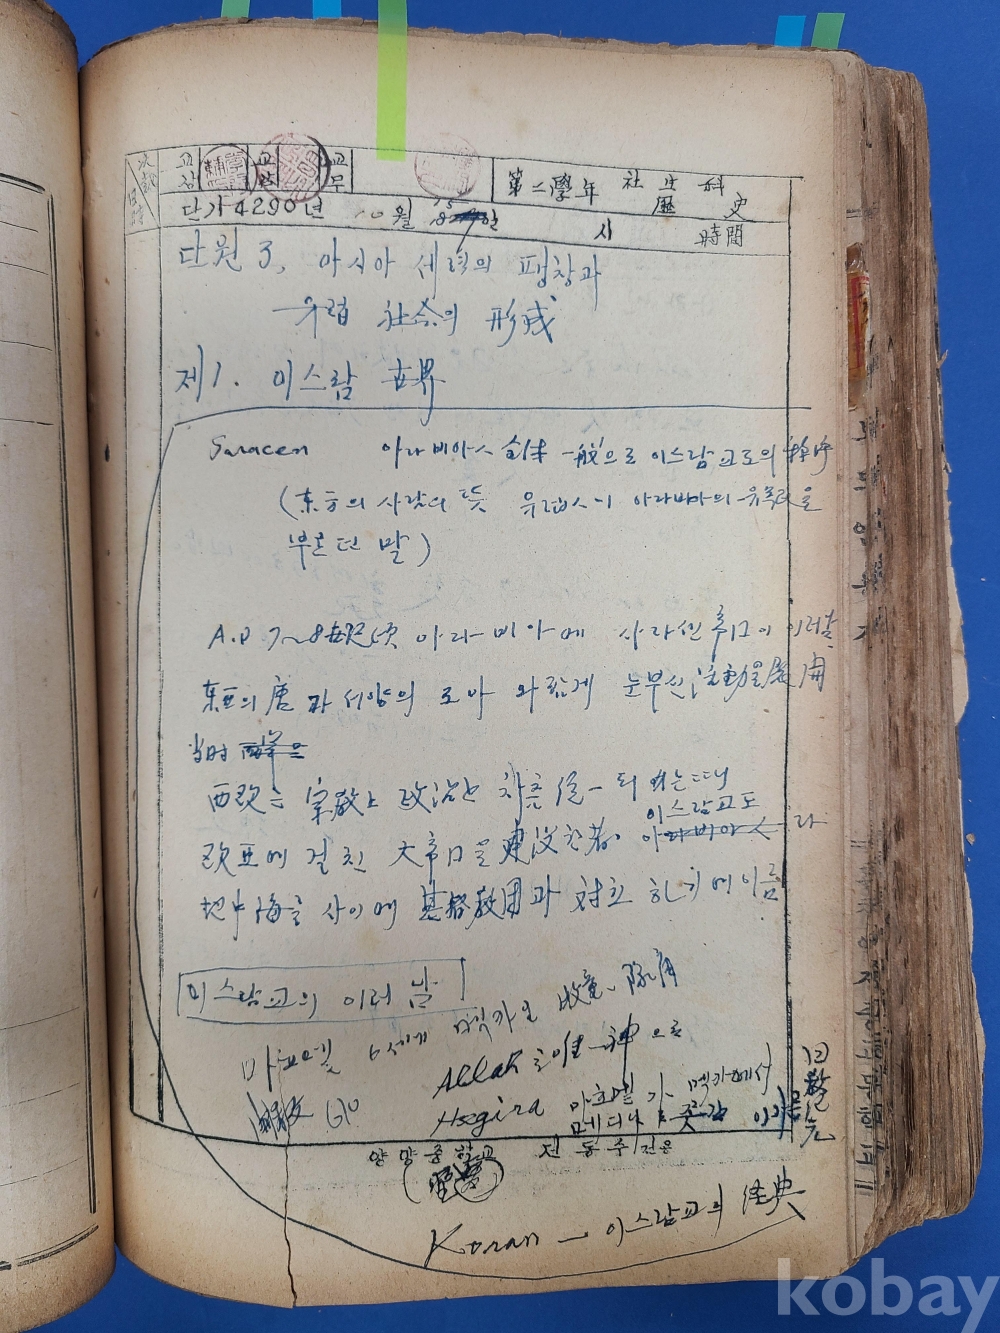 교장 교감 교무
第二學年 社生科
歷史
단기4290년 10월 15일 시 時間
단원 3, 아시아 세력의 팽창과
유럽 社会의 形成
제1. 이스람 世界
Saracen 아라비아人 全体 一般으로 이스람교도의
(东方의 사람의 뜻 유럽人이 아라비아의 유목民을
부르던 말)
A.D 7~8世紀頃 아라비아에 사라센 이 이러나
东亜의 唐과 서양의 로마 와 같게 눈부신 活動을 展開
当时
西欧는 宗敎上 政治上 차츰 统一 되 려는 때
이스람교도
欧亜에 걸친 大帝国을 建设한 者 라
地中海를 사이에 基督敎国과 対立 하기에 이름
이스람교의 이러남
마호멧 6세에 멕카의 牧童、隊商
ALLah を唯一神으로
610 Hegira 마호멧가 멕카에서
메디나로 쫓겨 이를
回敎纪元
양양중학교 전동주전용
Koran — 이스람교의 経典
kobay